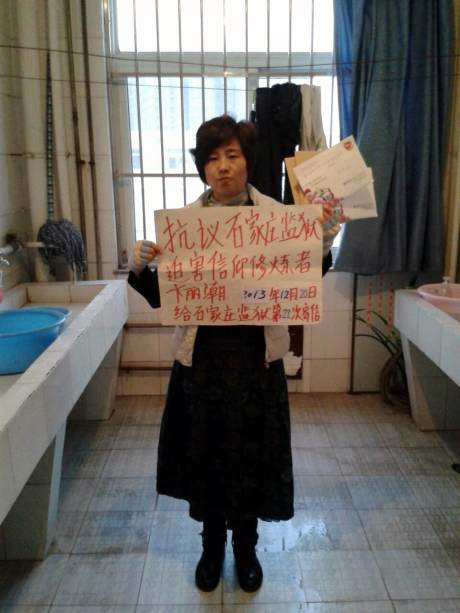 抗议石家庄监狱
迫害信仰修炼者
卞丽潮 2013年12月20日
给石家庄监狱第22次寄信